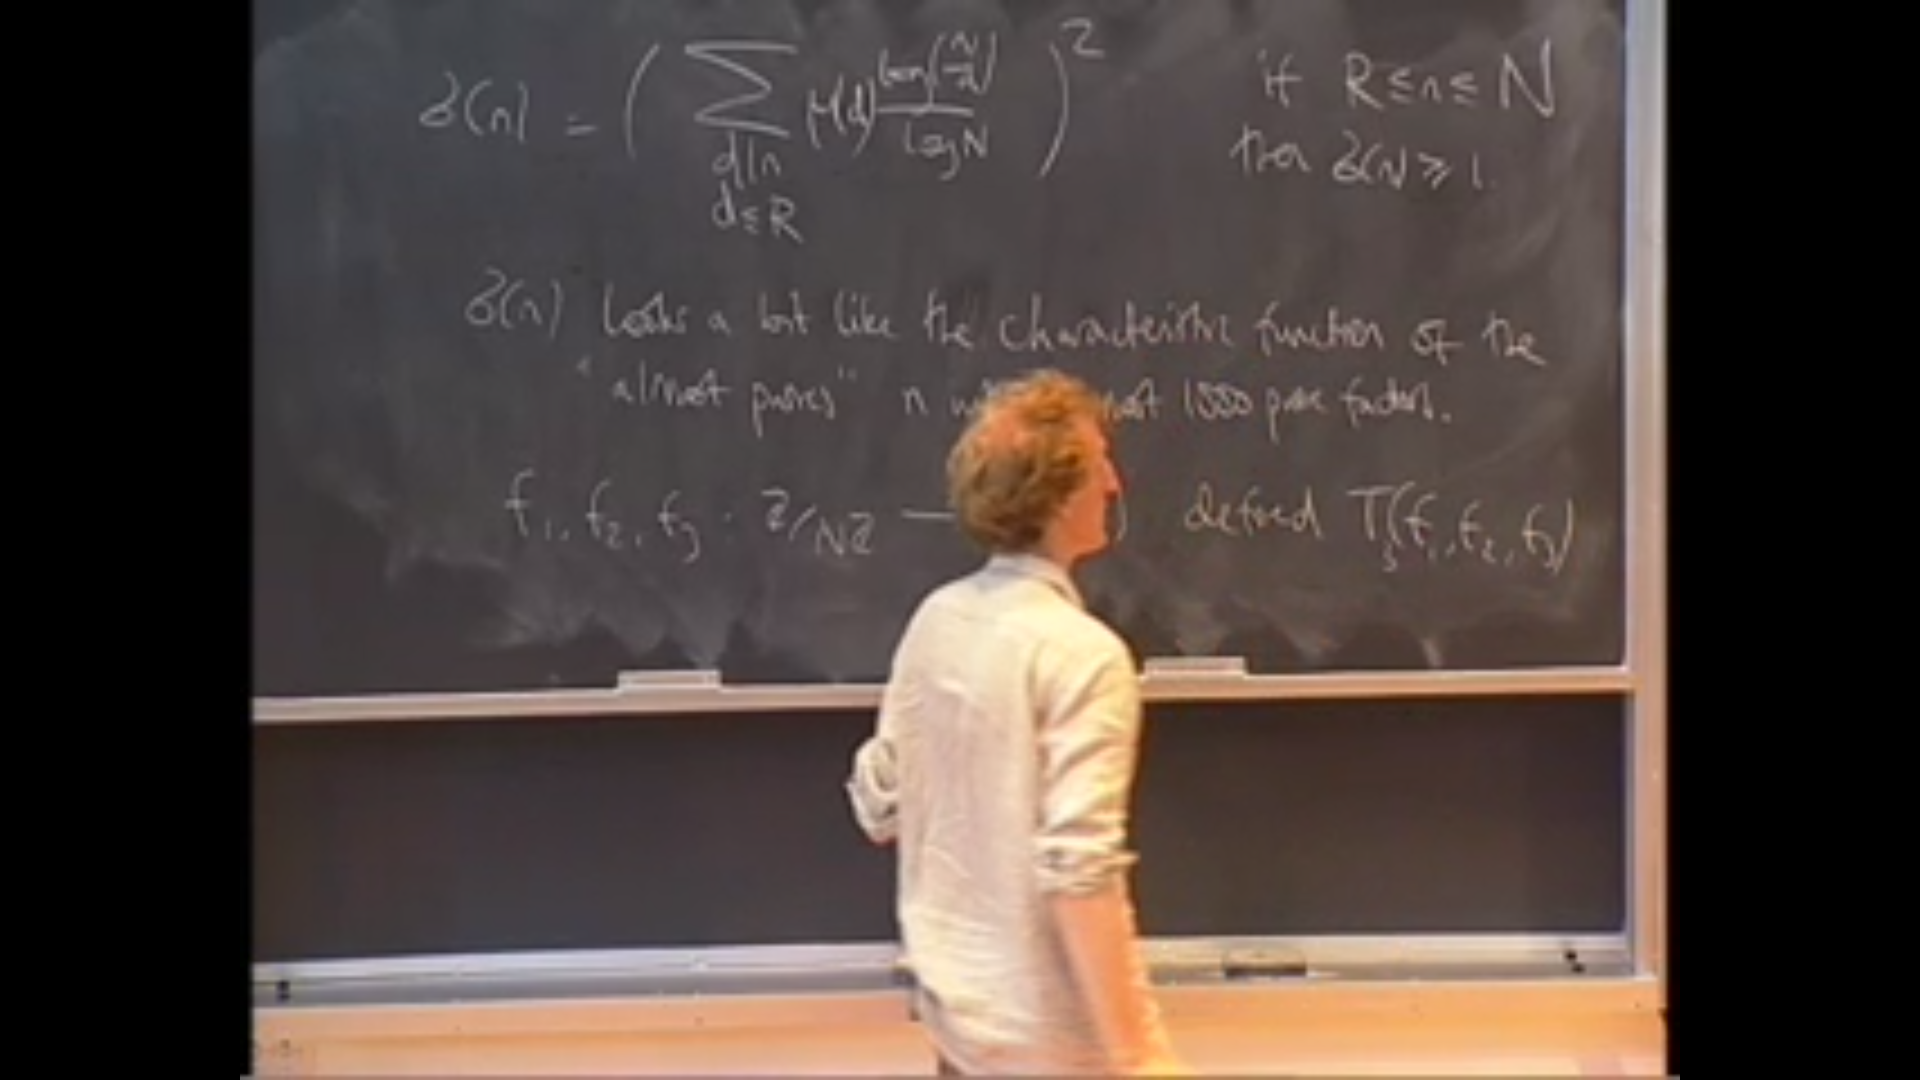 δ(n) = ( ∑ μ(d) log(N/d) / log N )² if R ≤ n ≤ N
d|n then δ(n) ≥ 1.
d ≤ R
δ(n) looks a bit like the characteristic function of the
"almost primes" n most 1000 prime factors.
f₁, f₂, f₃ : Z/NZ — ) defined T₃(f₁, f₂, f₃)